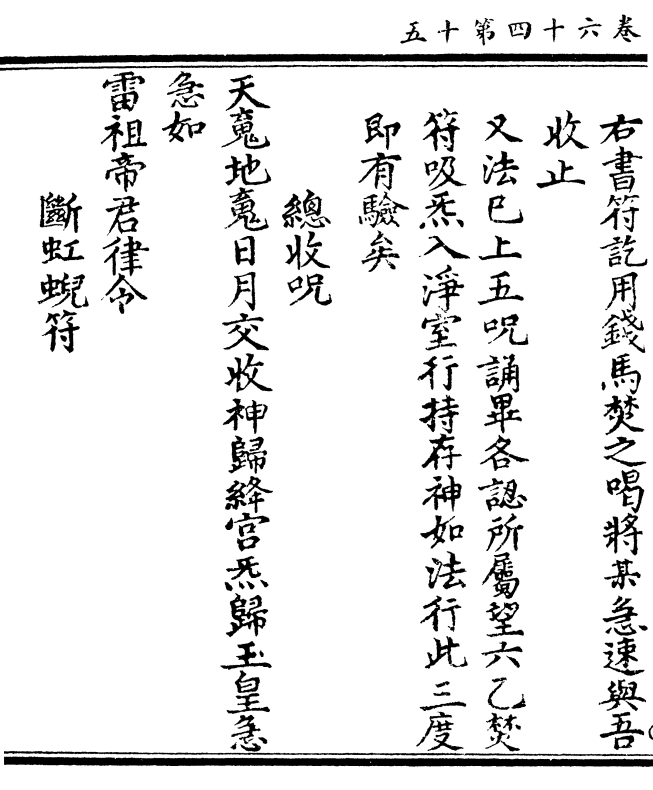 卷六十四第十五
右書符訖用錢馬焚之喝將某急速與吾
收止
又法已上五呪誦畢各認所屬望六乙焚
符吸炁入淨室行持存神如法行此三度
即有驗矣
總收呪
天魂地魂日月交收神歸絳宮炁歸玉皇急
急如
雷祖帝君律令
斷虹蜺符